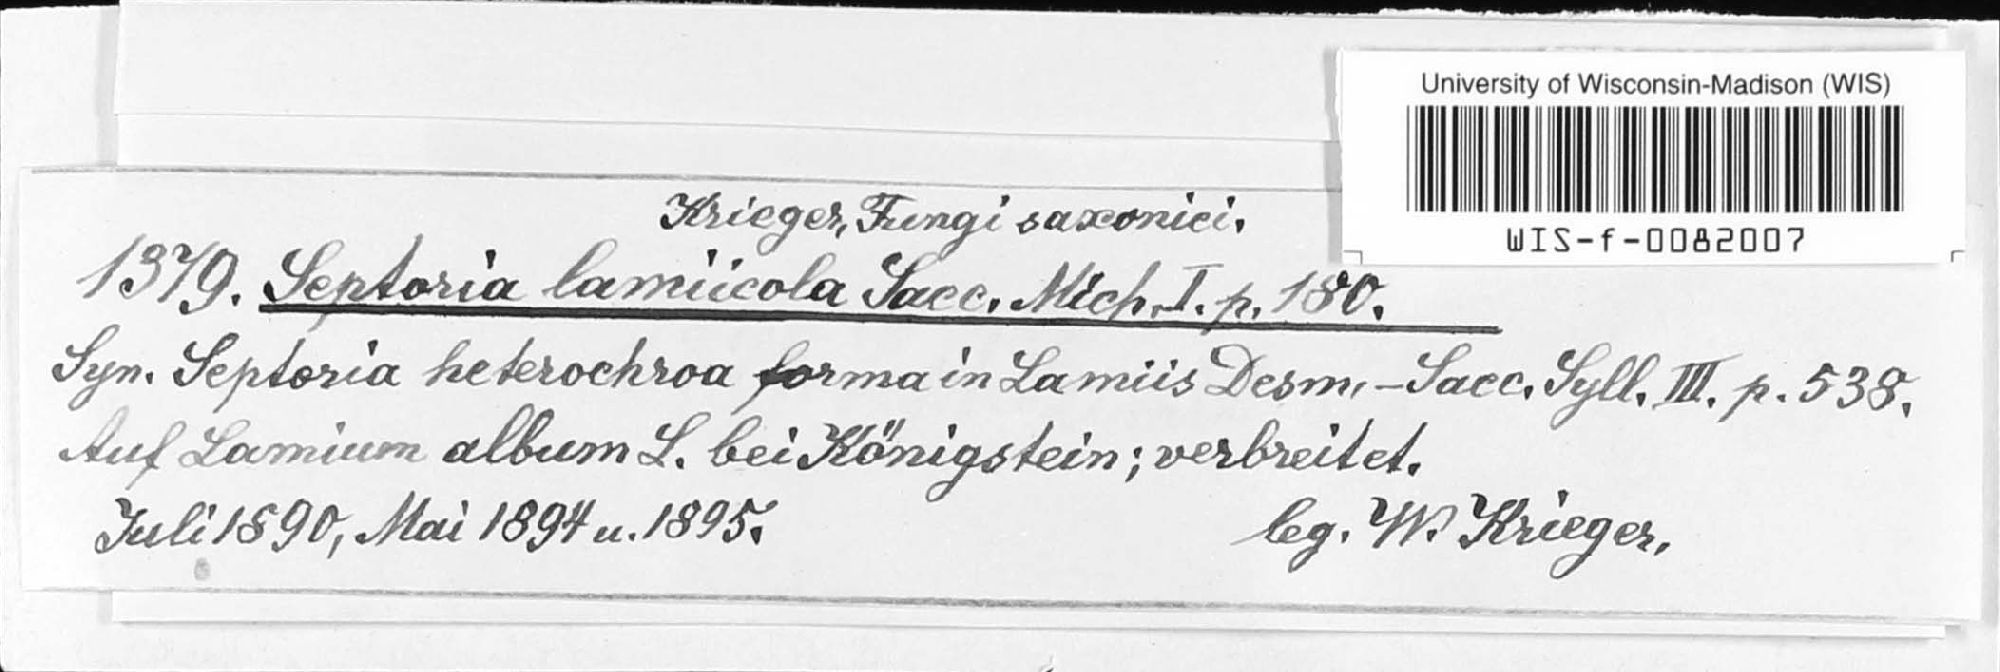 University of Wisconsin-Madison (WIS)
WIS-f-0082007
Krieger, Fungi saxonici.
1379. Septoria lamiicola Sacc. Mich. I. p. 180.
Syn. Septoria heterochroa forma in Lamiis Desm. – Sacc. Syll. III. p. 538.
Auf Lamium album L. bei Königstein; verbreitet.
Juli 1890, Mai 1894 u. 1895.
leg. W. Krieger.